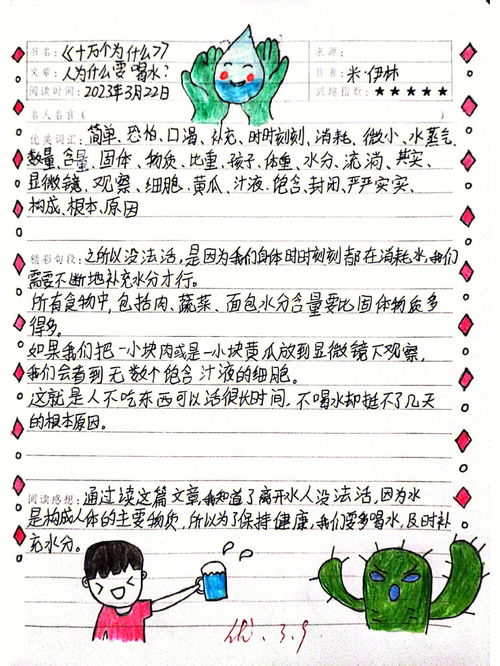 书名:《十万个为什么》
来源:
文章:人为什么要喝水?
作者:米·伊林
阅读时间:2023年3月22日
兴趣指数:★★★★★
名人名言(
)
优美词汇:简单、恐怕、口渴、补充、时时刻刻、消耗、微小、水蒸气、
数量、含量、固体、物质、比重、孩子、体重、水分、流淌、其实、
显微镜、观察、细胞、黄瓜、汁液、饱含、封闭、严严实实、
构成、根本、原因
精彩句段:之所以没法活,是因为我们身体时时刻刻都在消耗水,我们
需要不断地补充水分才行。
所有食物中,包括肉、蔬菜、面包水分含量要比固体物质多
得多。
如果我们把一小块肉或是一小块黄瓜放到显微镜下观察,
我们会看到无数个饱含汁液的细胞。
这就是人不吃东西可以活很长时间,不喝水却挺不了几天
的根本原因。
阅读感想:通过读这篇文章,我知道了离开水人没法活,因为水
是构成人体的主要物质,所以为了保持健康,我们要多喝水,及时补
充水分。
优.3.9